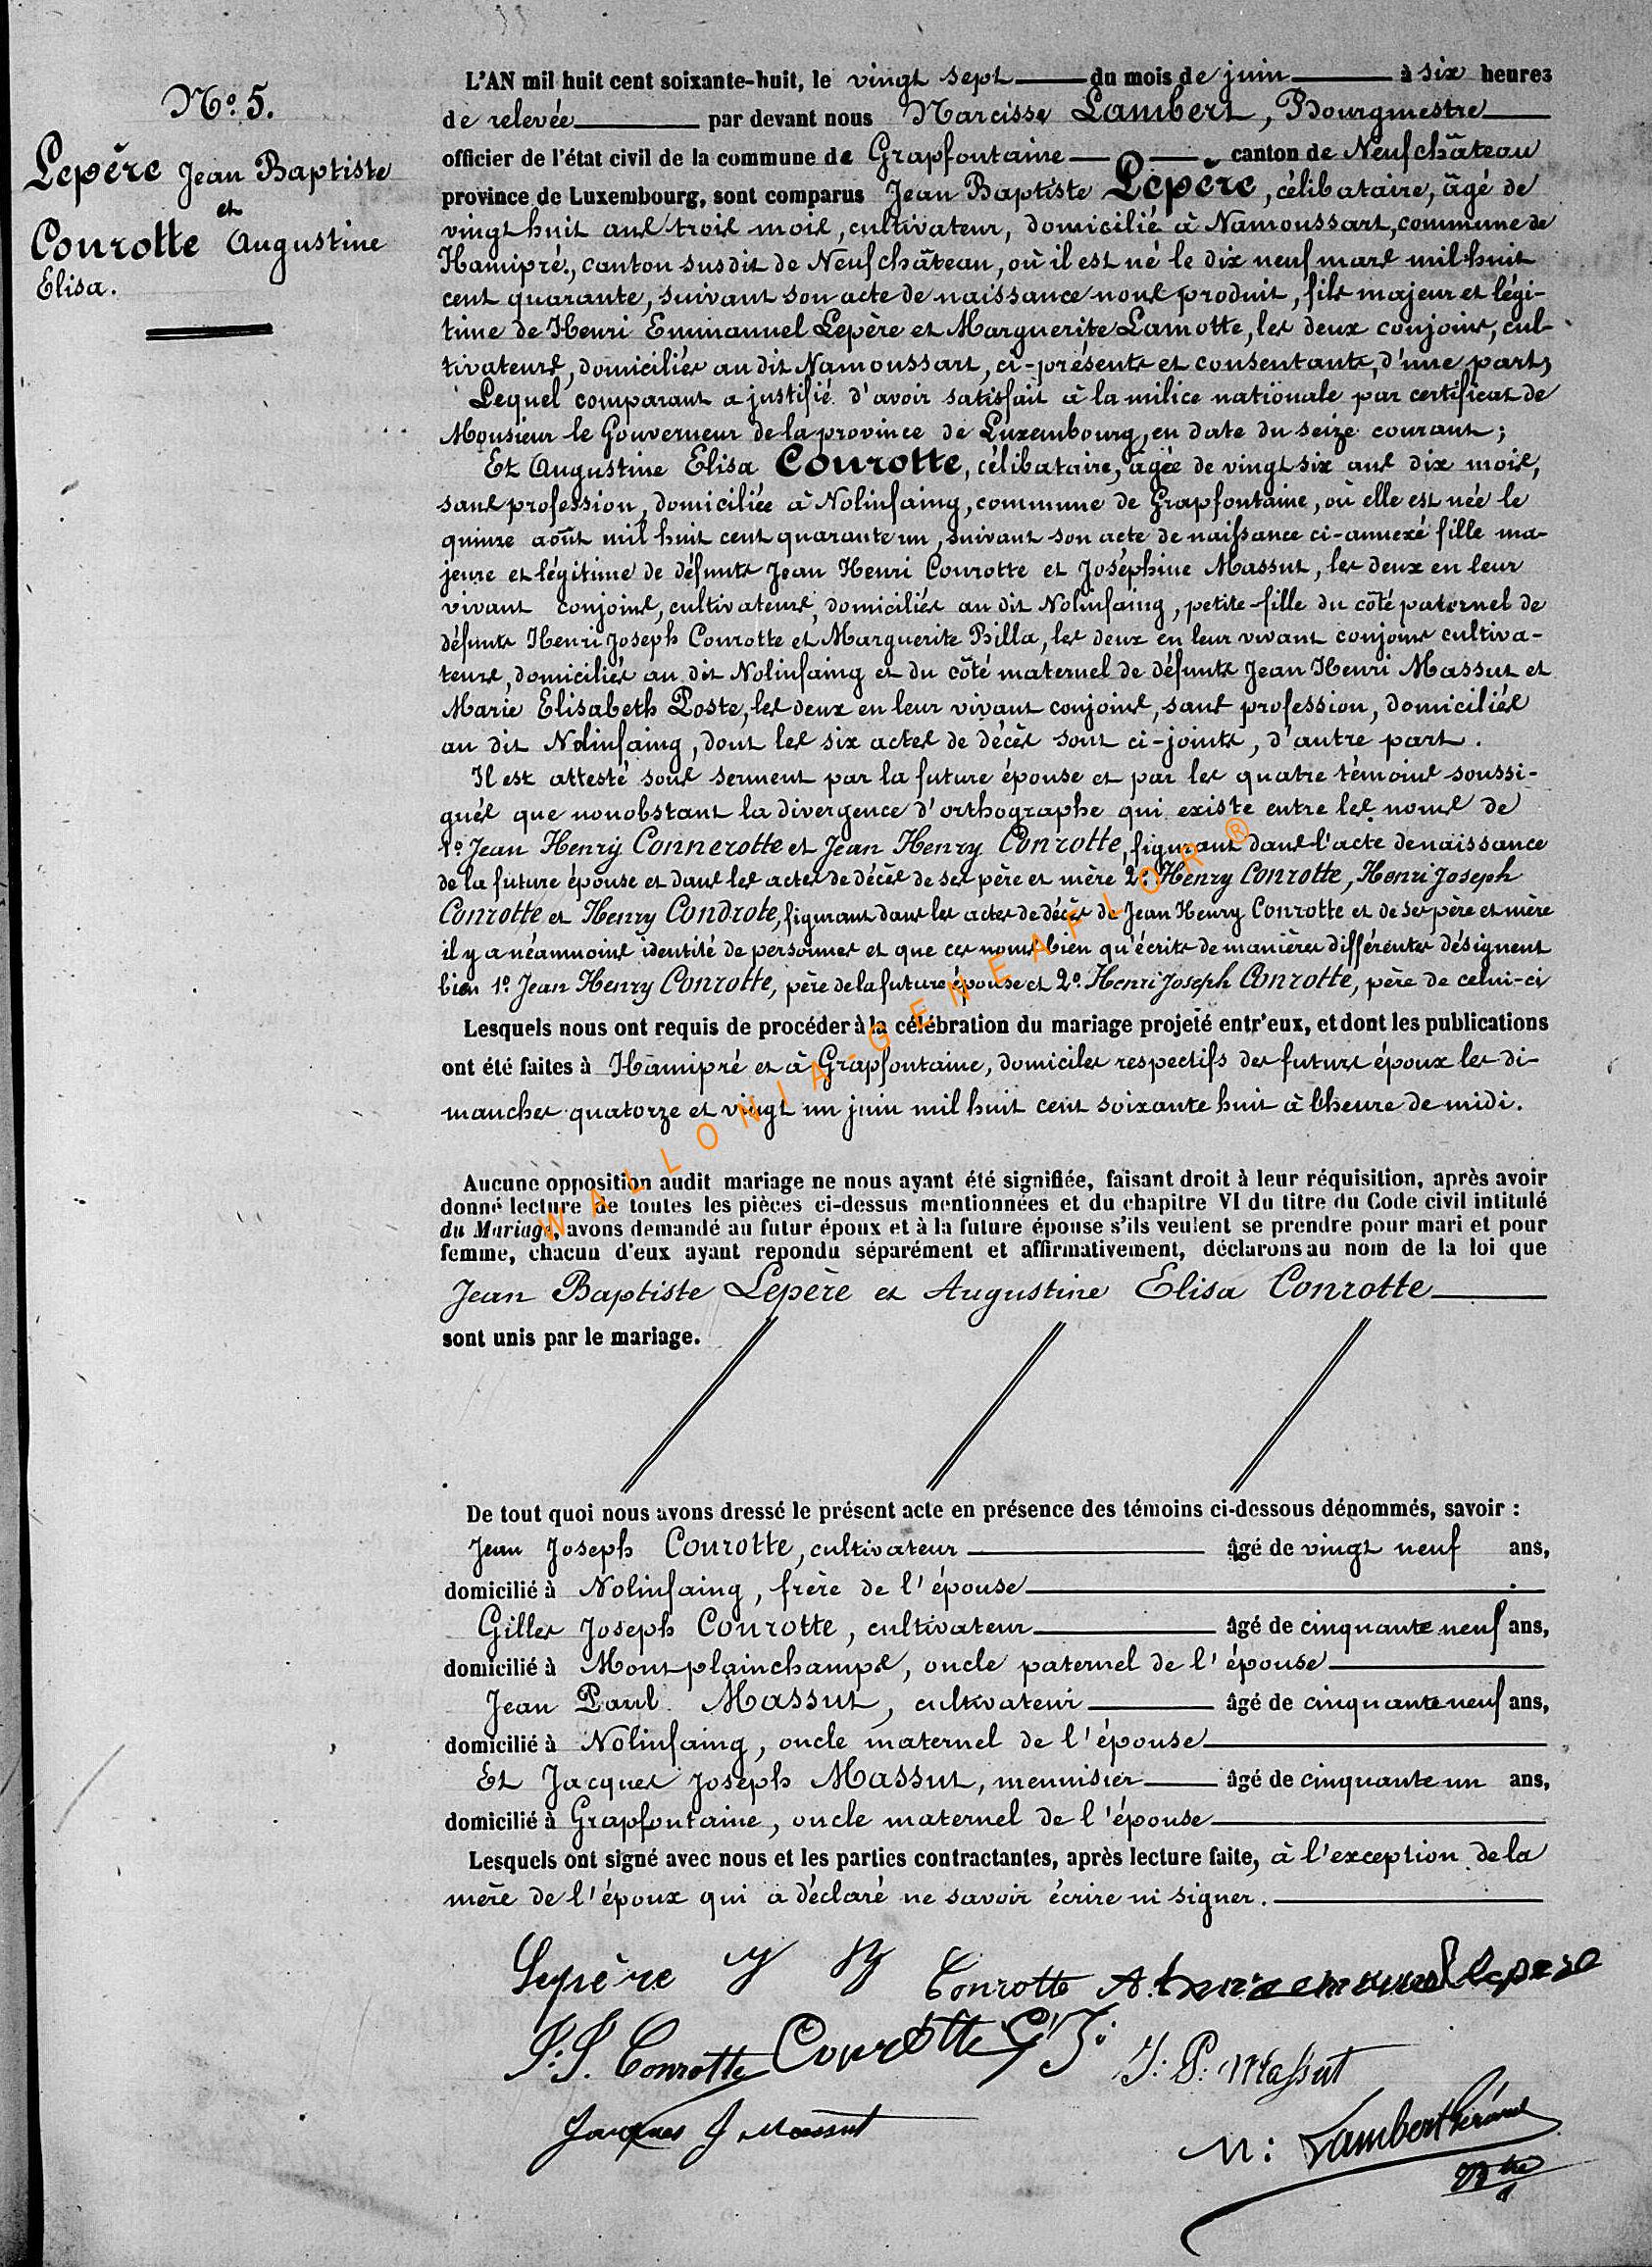 N.o 5.
Lepère Jean Baptiste
et
Conrotte Augustine
Elisa.
L'AN mil huit cent soixante-huit, le vingt sept du mois de juin à six heures
de relevée par devant nous Narcisse Lambert, Bourgmestre
officier de l'état civil de la commune de Grapfontaine canton de Neufchâteau
province de Luxembourg, sont comparus Jean Baptiste Lepère, célibataire, âgé de
vingt huit ans trois mois, cultivateur, domicilié à Namoussart, commune de
Hamipré, canton susdit de Neufchâteau, où il est né le dix neuf mars mil huit
cent quarante, suivant son acte de naissance nous produit, fils majeur et légi-
time de Henri Emmanuel Lepère et Marguerite Lamotte, les deux conjoins, cul-
tivateurs, domiciliés au dit Namoussart, ci-présents et consentants, d'une part,
Lequel comparant a justifié d'avoir satisfait à la milice nationale par certificat de
Monsieur le Gouverneur de la province de Luxembourg, en date du seize courant;
Et Augustine Elisa Conrotte, célibataire, âgée de vingt six ans dix mois,
sans profession, domiciliée à Nolinfaing, commune de Grapfontaine, où elle est née le
quinze août mil huit cent quarante un, suivant son acte de naissance ci-annexé fille ma-
jeure et légitime de défunts Jean Henri Conrotte et Joséphine Massut, les deux en leur
vivant conjoins, cultivateurs, domiciliés au dit Nolinfaing, petite-fille du côté paternel de
défunts Henri Joseph Conrotte et Marguerite Billa, les deux en leur vivant conjoins cultiva-
teurs, domiciliés au dit Nolinfaing et du côté maternel de défunts Jean Henri Massut et
Marie Elisabeth Poste, les deux en leur vivant conjoins, sans profession, domiciliés
au dit Nolinfaing, dont les six actes de décès sont ci-joints, d'autre part.
Il est attesté sous serment par la future épouse et par les quatre témoins soussi-
gnés que nonobstant la divergence d'orthographe qui existe entre les noms de
1.o Jean Henry Connerotte et Jean Henry Conrotte, figurant dans l'acte de naissance
de la future épouse et dans les actes de décès de ses père et mère 2.o Henry Conrotte, Henri Joseph
Conrotte et Henry Condrote, figurant dans les actes de décès de Jean Henry Conrotte et de ses père et mère
il y a néanmoins identité de personnes et que ces noms bien qu'écrits de manières différentes désignent
bien 1.o Jean Henry Conrotte, père de la future épouse et 2.o Henri Joseph Conrotte, père de celui-ci
Lesquels nous ont requis de procéder à la célébration du mariage projeté entr'eux, et dont les publications
ont été faites à Hamipré et à Grapfontaine, domiciles respectifs des futurs époux les di-
manches quatorze et vingt un juin mil huit cent soixante huit à l'heure de midi.
Aucune opposition audit mariage ne nous ayant été signifiée, faisant droit à leur réquisition, après avoir
donné lecture de toutes les pièces ci-dessus mentionnées et du chapitre VI du titre du Code civil intitulé
du Mariage, avons demandé au futur époux et à la future épouse s'ils veulent se prendre pour mari et pour
femme, chacun d'eux ayant repondu séparément et affirmativement, déclarons au nom de la loi que
Jean Baptiste Lepère et Augustine Elisa Conrotte
sont unis par le mariage.
WALLONIA-GENEAFLOR®
De tout quoi nous avons dressé le présent acte en présence des témoins ci-dessous dénommés, savoir :
Jean Joseph Conrotte, cultivateur âgé de vingt neuf ans,
domicilié à Nolinfaing, frère de l'épouse
Gilles Joseph Conrotte, cultivateur âgé de cinquante neuf ans,
domicilié à Montplainchamps, oncle paternel de l'épouse
Jean Paul Massut, cultivateur âgé de cinquante neuf ans,
domicilié à Nolinfaing, oncle maternel de l'épouse
Et Jacques Joseph Massut, menuisier âgé de cinquante un ans,
domicilié à Grapfontaine, oncle maternel de l'épouse
Lesquels ont signé avec nous et les parties contractantes, après lecture faite, à l'exception de la
mère de l'époux qui a déclaré ne savoir écrire ni signer.
Lepère J B Conrotte A. lepere
J: J. Conrotte Conrotte G J: J: P: Massut
Jacques J Massut
N: Lambert Gérard
Btre